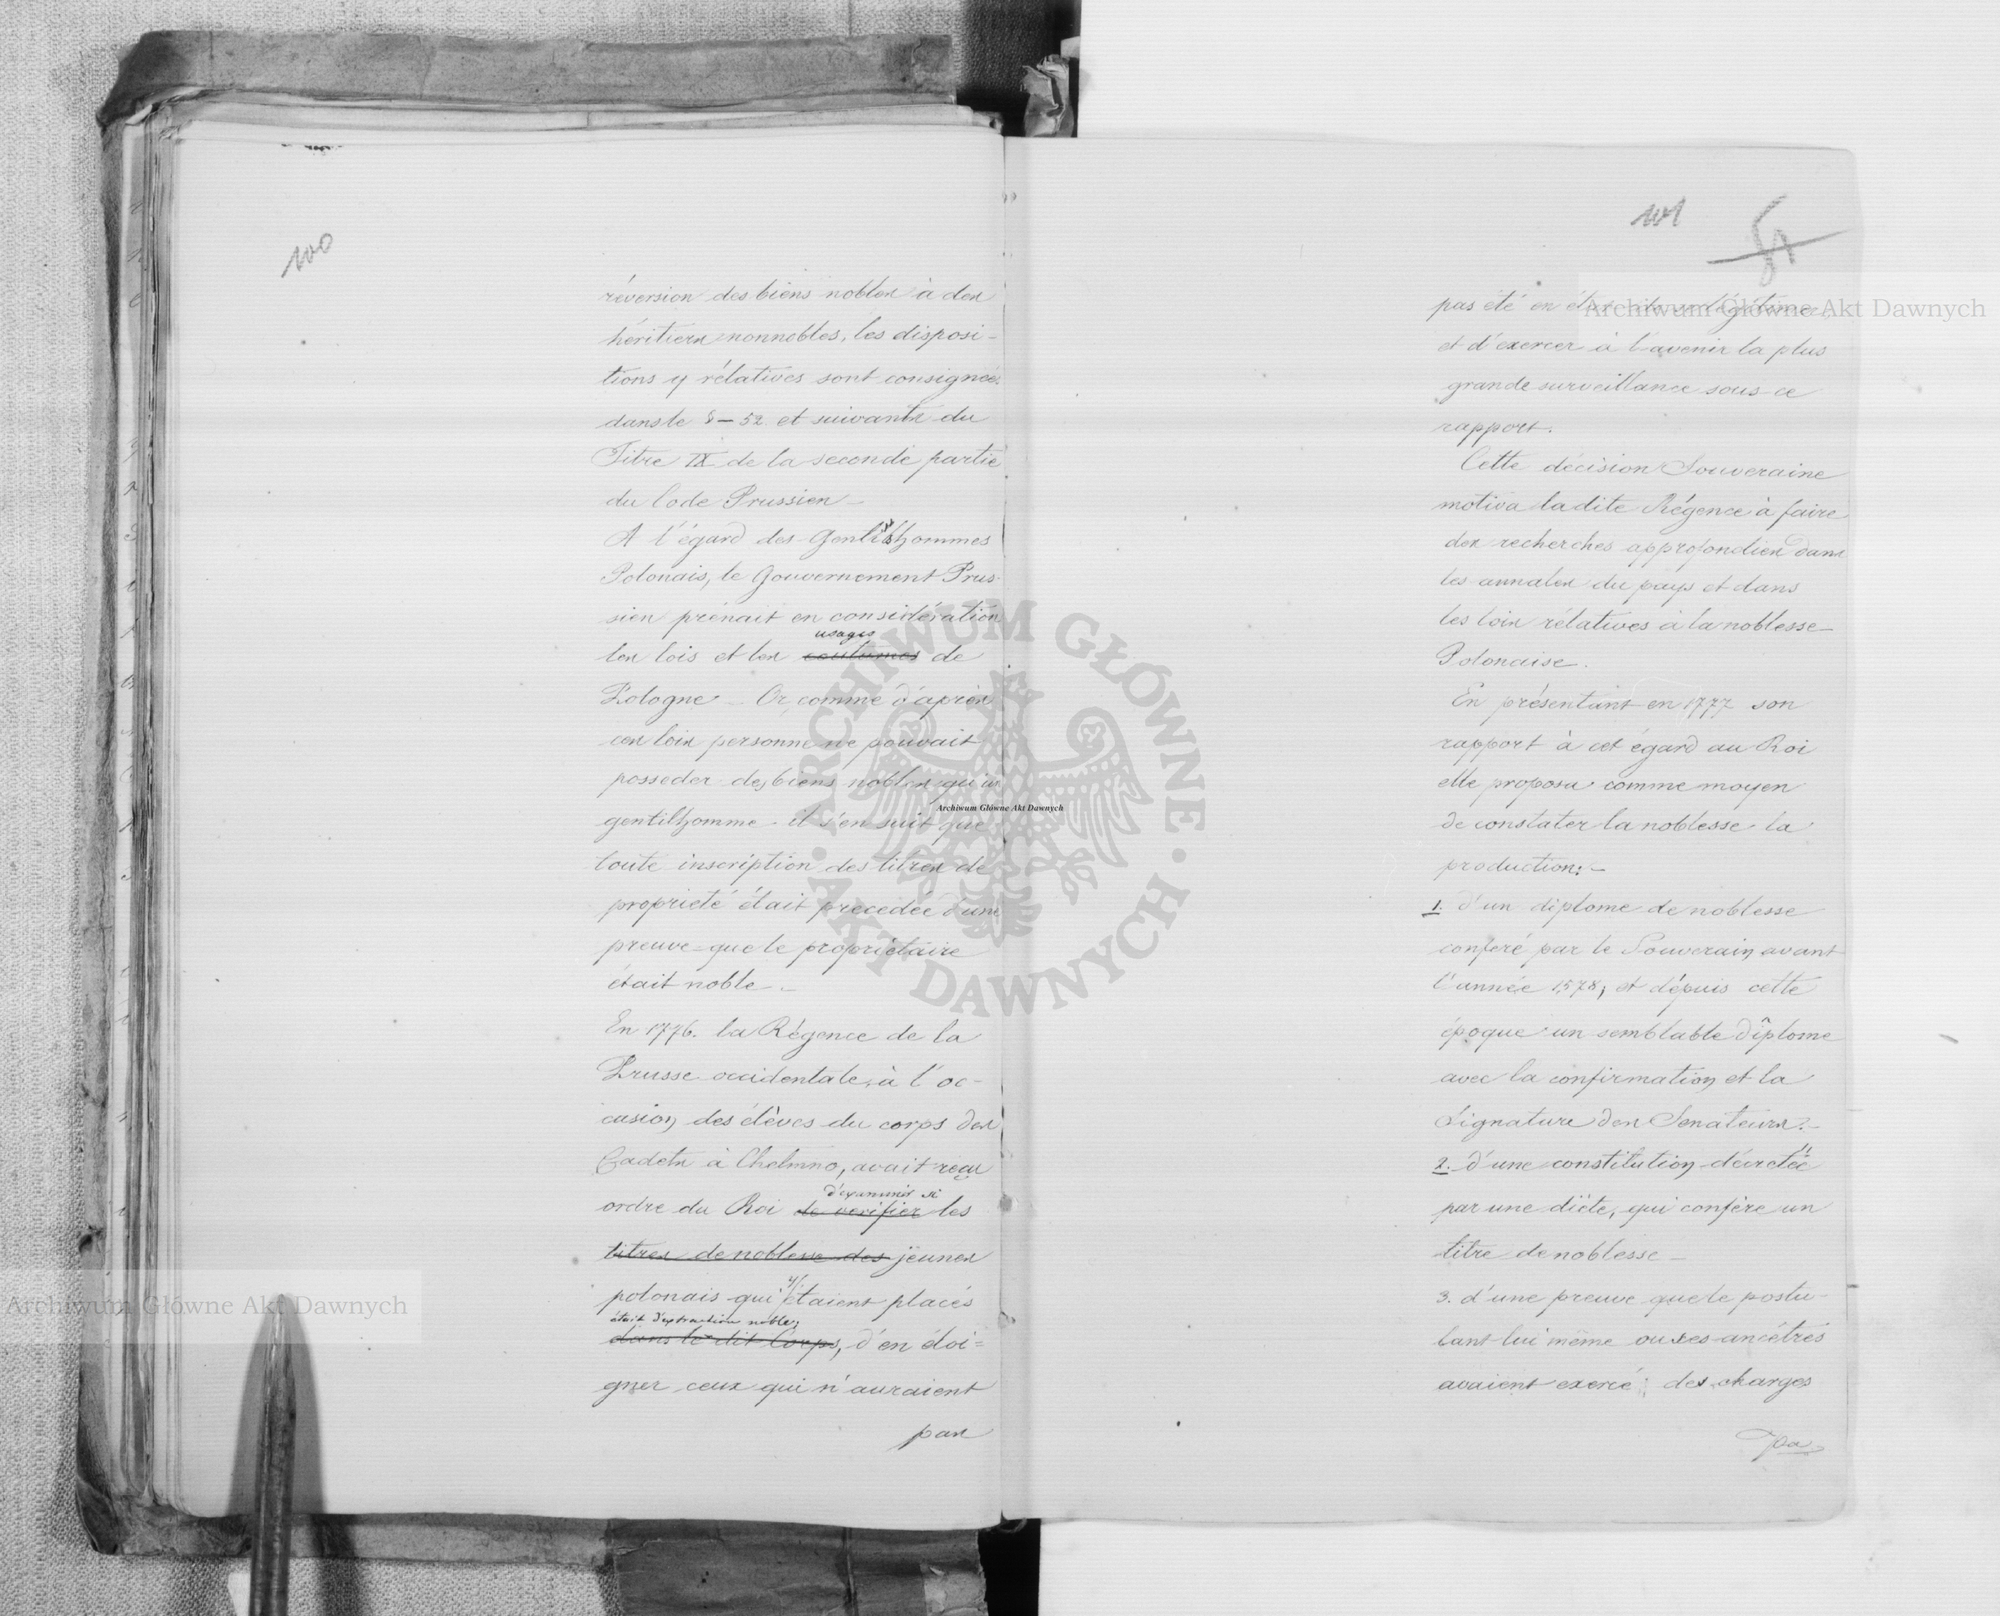 100
réversion des biens nobles à des
héritiers nonnobles, les disposi-
tions y rélatives sont consignées
dans le § — 52. et suivants du
Titre IX de la seconde partie
du Code Prussien —
A l'égard des Gentilshommes
Polonais, le Gouvernement Prus-
sien prénait en considération
usages
les lois et les coutumes de
Pologne — Or, comme d'après
ces lois personne ne pouvait
posseder des biens nobles qu'un
gentilhomme - il s'en suit que
toute inscription des titres de
proprieté était precédée d'une
preuve que le propriétaire
était noble —
En 1776. la Régence de la
Prusse occidentale, à l'oc-
casion des élèves du corps des
Cadets à Chelmno, avait reçu
d'examiner si
ordre du Roi de verifier les
titres de noblesse des jeunes
polonais qui y étaient placés
était d'extraction noble;
dans le dit Corps, d'en éloi=
gner ceux qui n'auraient
pas
101
pas été en état de se légitimer,
et d'exercer à l'avenir la plus
grande surveillance sous ce
rapport.
Cette décision Souveraine
motiva la dite Régence à faire
des recherches approfondies dans
les annales du pays et dans
les lois rélatives à la noblesse
Polonaise.
En présentant en 1777 son
rapport à cet égard au Roi
elle proposa comme moyen
de constater la noblesse la
production: —
1. d'un diplome de noblesse
conferé par le Souverain avant
l'année 1578, et dépuis cette
époque un semblable diplome
avec la confirmation et la
Signature des Senateurs. —
2. d'une constitution décretée
par une diète, qui confère un
titre de noblesse —
3. d'une preuve que le postu-
lant lui même ou ses ancêtres
avaient exercé des charges
Archiwum Główne Akt Dawnych
Archiwum Główne Akt Dawnych
Archiwum Główne Akt Dawnych
ARCHIWUM GŁÓWNE · AKT DAWNYCH ·